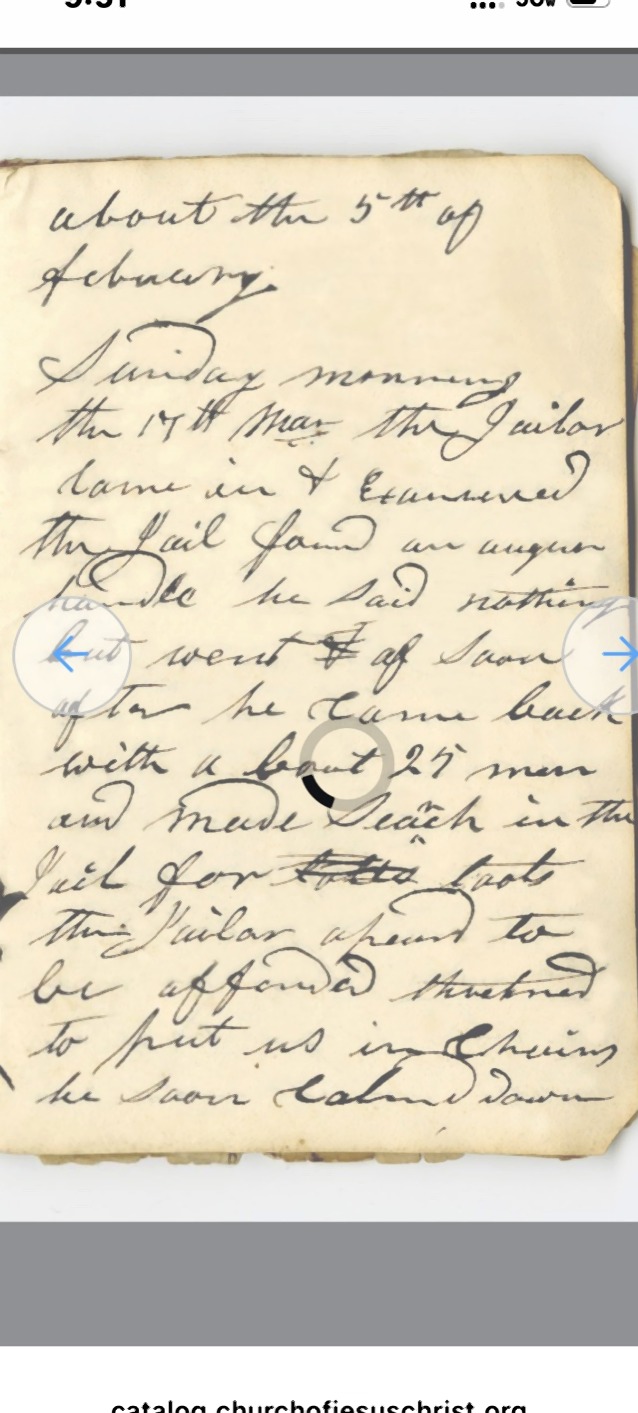 about the 5th of
febuary.
Sunday morning
the 17th Mar the Jailor
came in & Examened
the Jail found an auguer
handle he said nothing
but went of soon
after he came back
with a bout 25 men
and made Seach in the
Jail for tools
the Jailor apeard to
be affended thretned
to put us in Chains
he soon calmd down
catalog.churchofjesuschrist.org